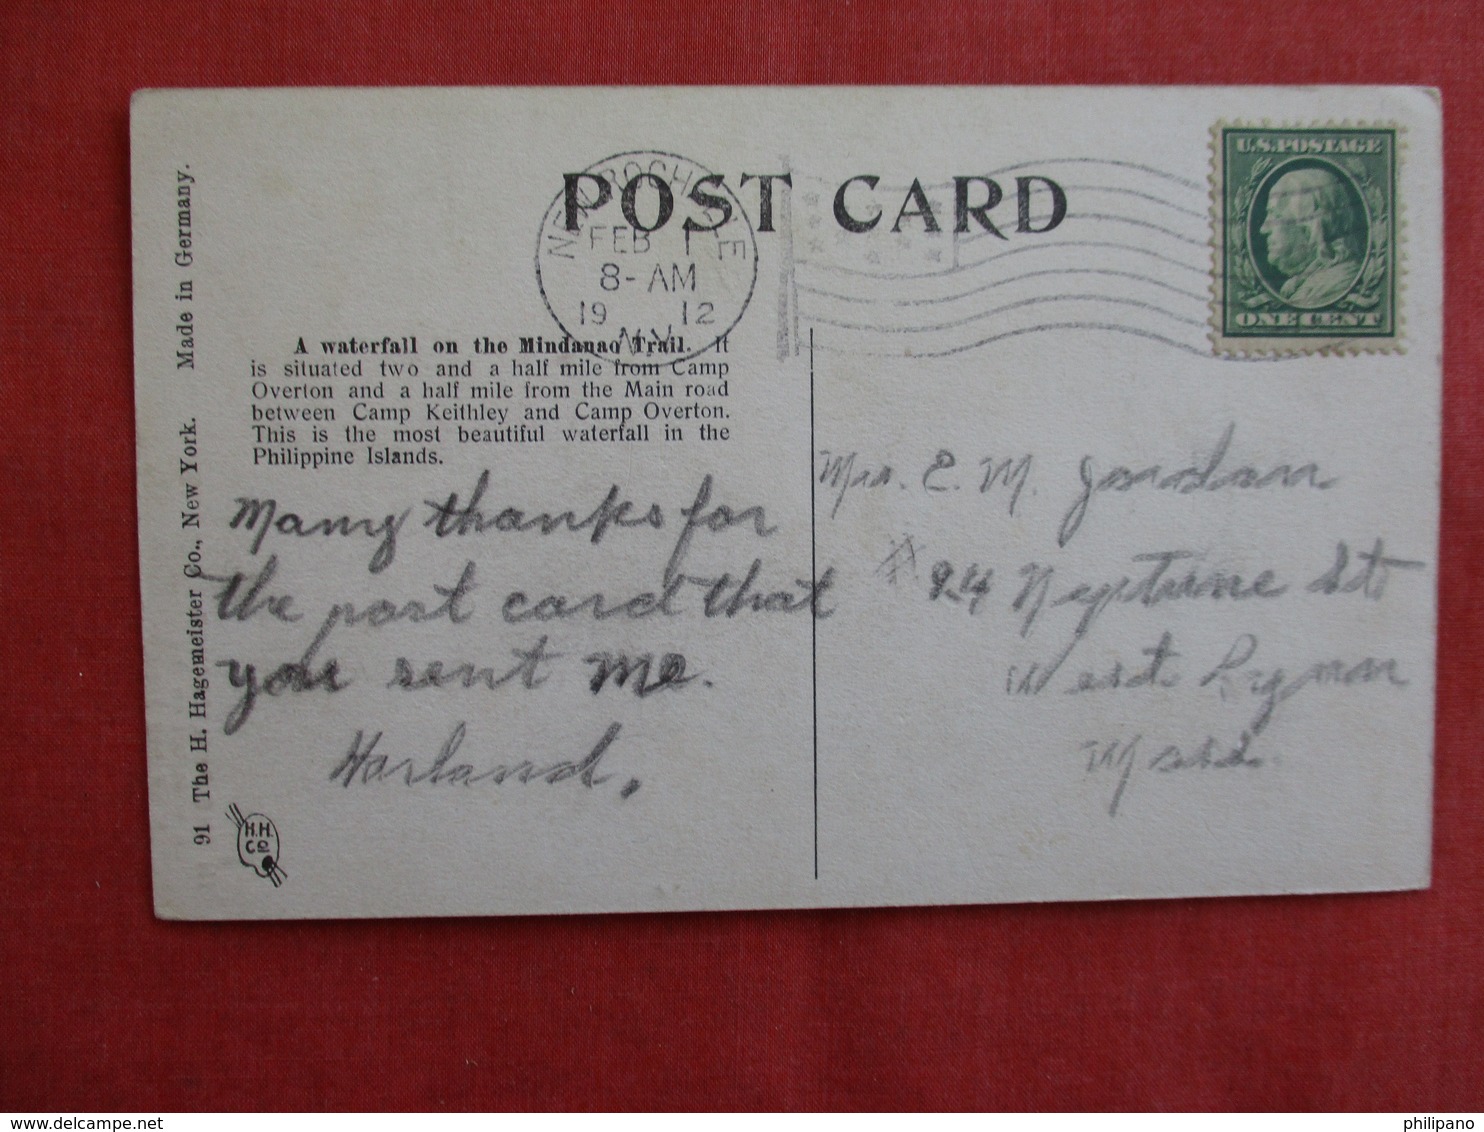 POST CARD
NEW ROCHELLE
FEB 1
8-AM
19 12
N.Y.
U.S. POSTAGE
ONE CENT
A waterfall on the Mindanao Trail. It
is situated two and a half mile from Camp
Overton and a half mile from the Main road
between Camp Keithley and Camp Overton.
This is the most beautiful waterfall in the
Philippine Islands.
Many thanks for
the post card that
you sent me.
Harland.
Mrs. E. M. Jordan
# 94 Neptune St
West Lynn
Mass.
91 The H. Hagemeister Co., New York. Made in Germany.
H.H.
Co
delcampe.net
philipano